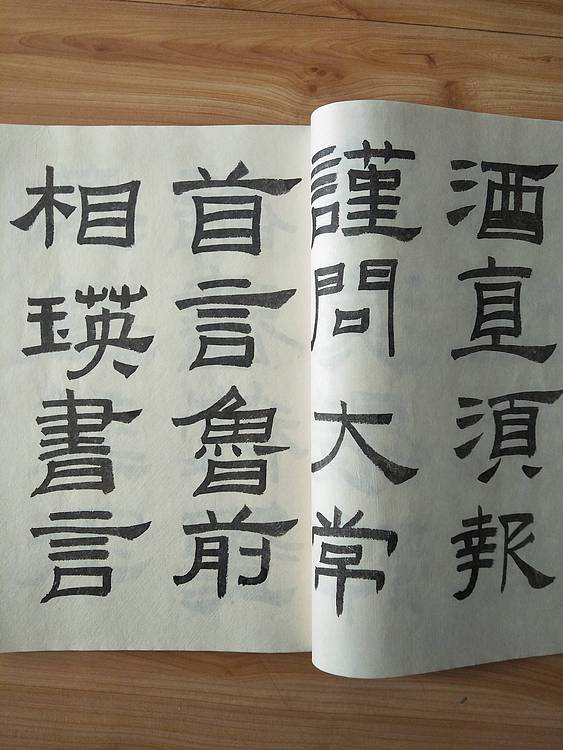 酒直須報
謹問大常
首言魯前
相瑛書言